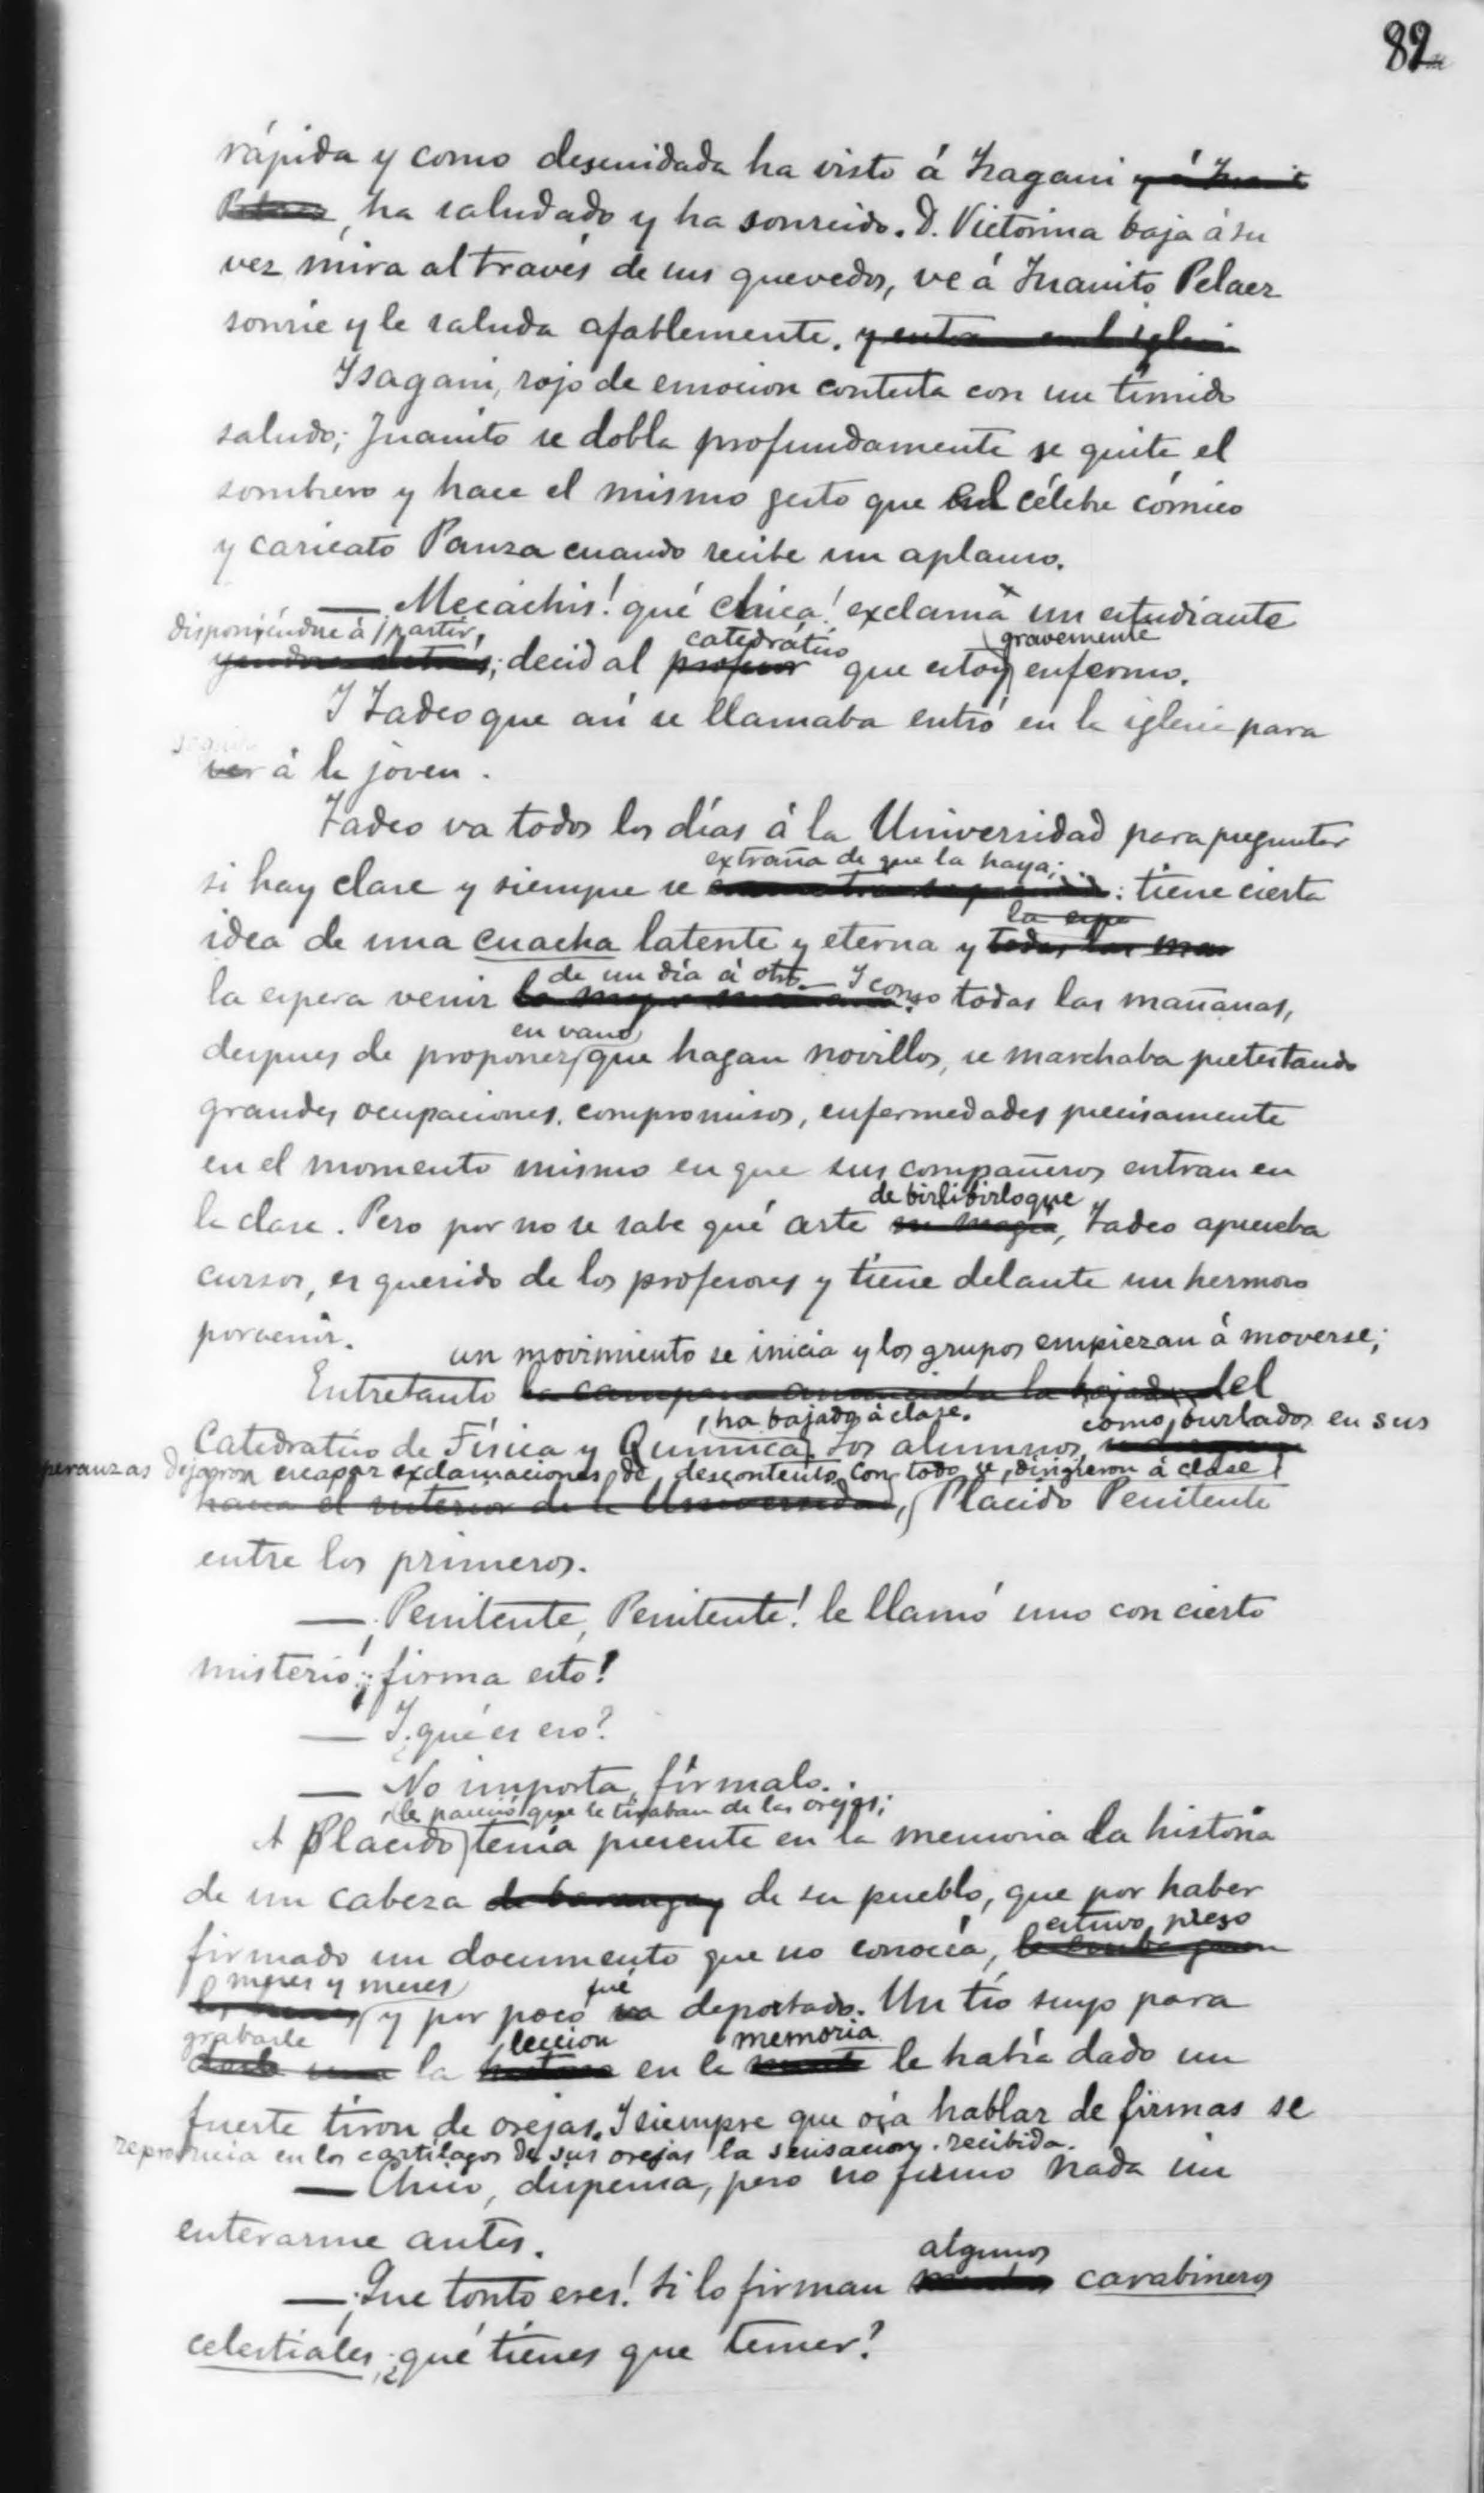 82
rápida y como descuidada ha visto á Isagani y á Juanito
Pelaez, ha saludado y ha sonreido. D. Victorina baja á su
vez mira al través de sus quevedos, ve á Juanito Pelaez
sonrie y le saluda afablemente. y entra en l iglesia
Isagani, rojo de emocion contesta con un tímido
saludo; Juanito se dobla profundamente se quita el
sombrero y hace el mismo gesto que el célebre cómico
y caricato Panza cuando recibe un aplauso.
— ¡Mecáchis! qué chica! exclama un estudiante
disponiéndose á partir,
catedrático
gravemente
yendose detrás; decid al profesor que estoy enfermo.
Y Tadeo que así se llamaba entró en la iglesia para
seguir
ver á la joven.
Tadeo va todos los días á la Universidad para preguntar
extraña de que la haya;
si hay clase y siempre se : tiene cierta
la espe
idea de una cuacha latente y eterna y todas las ma
de un día á otro.— Y como
la espera venir todas las mañanas,
en vano
despues de proponer que hagan novillos, se marchaba pretestando
grandes ocupaciones, compromisos, enfermedades precisamente
en el momento mismo en que sus compañeros entran en
de birlibirloque
la clase. Pero por no se sabe qué arte su magia, Tadeo aprueba
cursos, es querido de los profesores y tiene delante un hermoso
porvenir.
un movimiento se inicia y los grupos empiezan á moverse;
Entretanto la campana la bajada del
ha bajado á clase.
como burlados en sus
Catedratico de Física y Química Los alumnos,
peranzas dejaron escapar exclamaciones de descontento con todo se dirigieron á clase
hacia el interior de la Universidad, Plácido Penitente
entre los primeros.
— ¡Penitente, Penitente! le llamó uno con cierto
misterio; ¡firma esto!
— Y ¿qué es eso?
— No importa, fírmalo.
le pareció que le tiraban de las orejas;
A Placido tenía presente en la memoria la historia
de un cabeza de barangay de su pueblo, que por haber
estuvo preso
firmado un documento que no conocía,
meses y meses
fué
y por poco va deportado. Un tío suyo para
grabarle
leccion
memoria
darle una la historia en la mente le había dado un
fuerte tiron de orejas. Y siempre que oía hablar de firmas se
reproducia en los cartílagos de sus orejas la sensacion recibida.
— Chico, dispensa, pero no firmo nada sin
enterarme antes.
algunos
— ¡Que tonto eres! si lo firman muchos carabineros
celestiales, ¿qué tienes que temer?